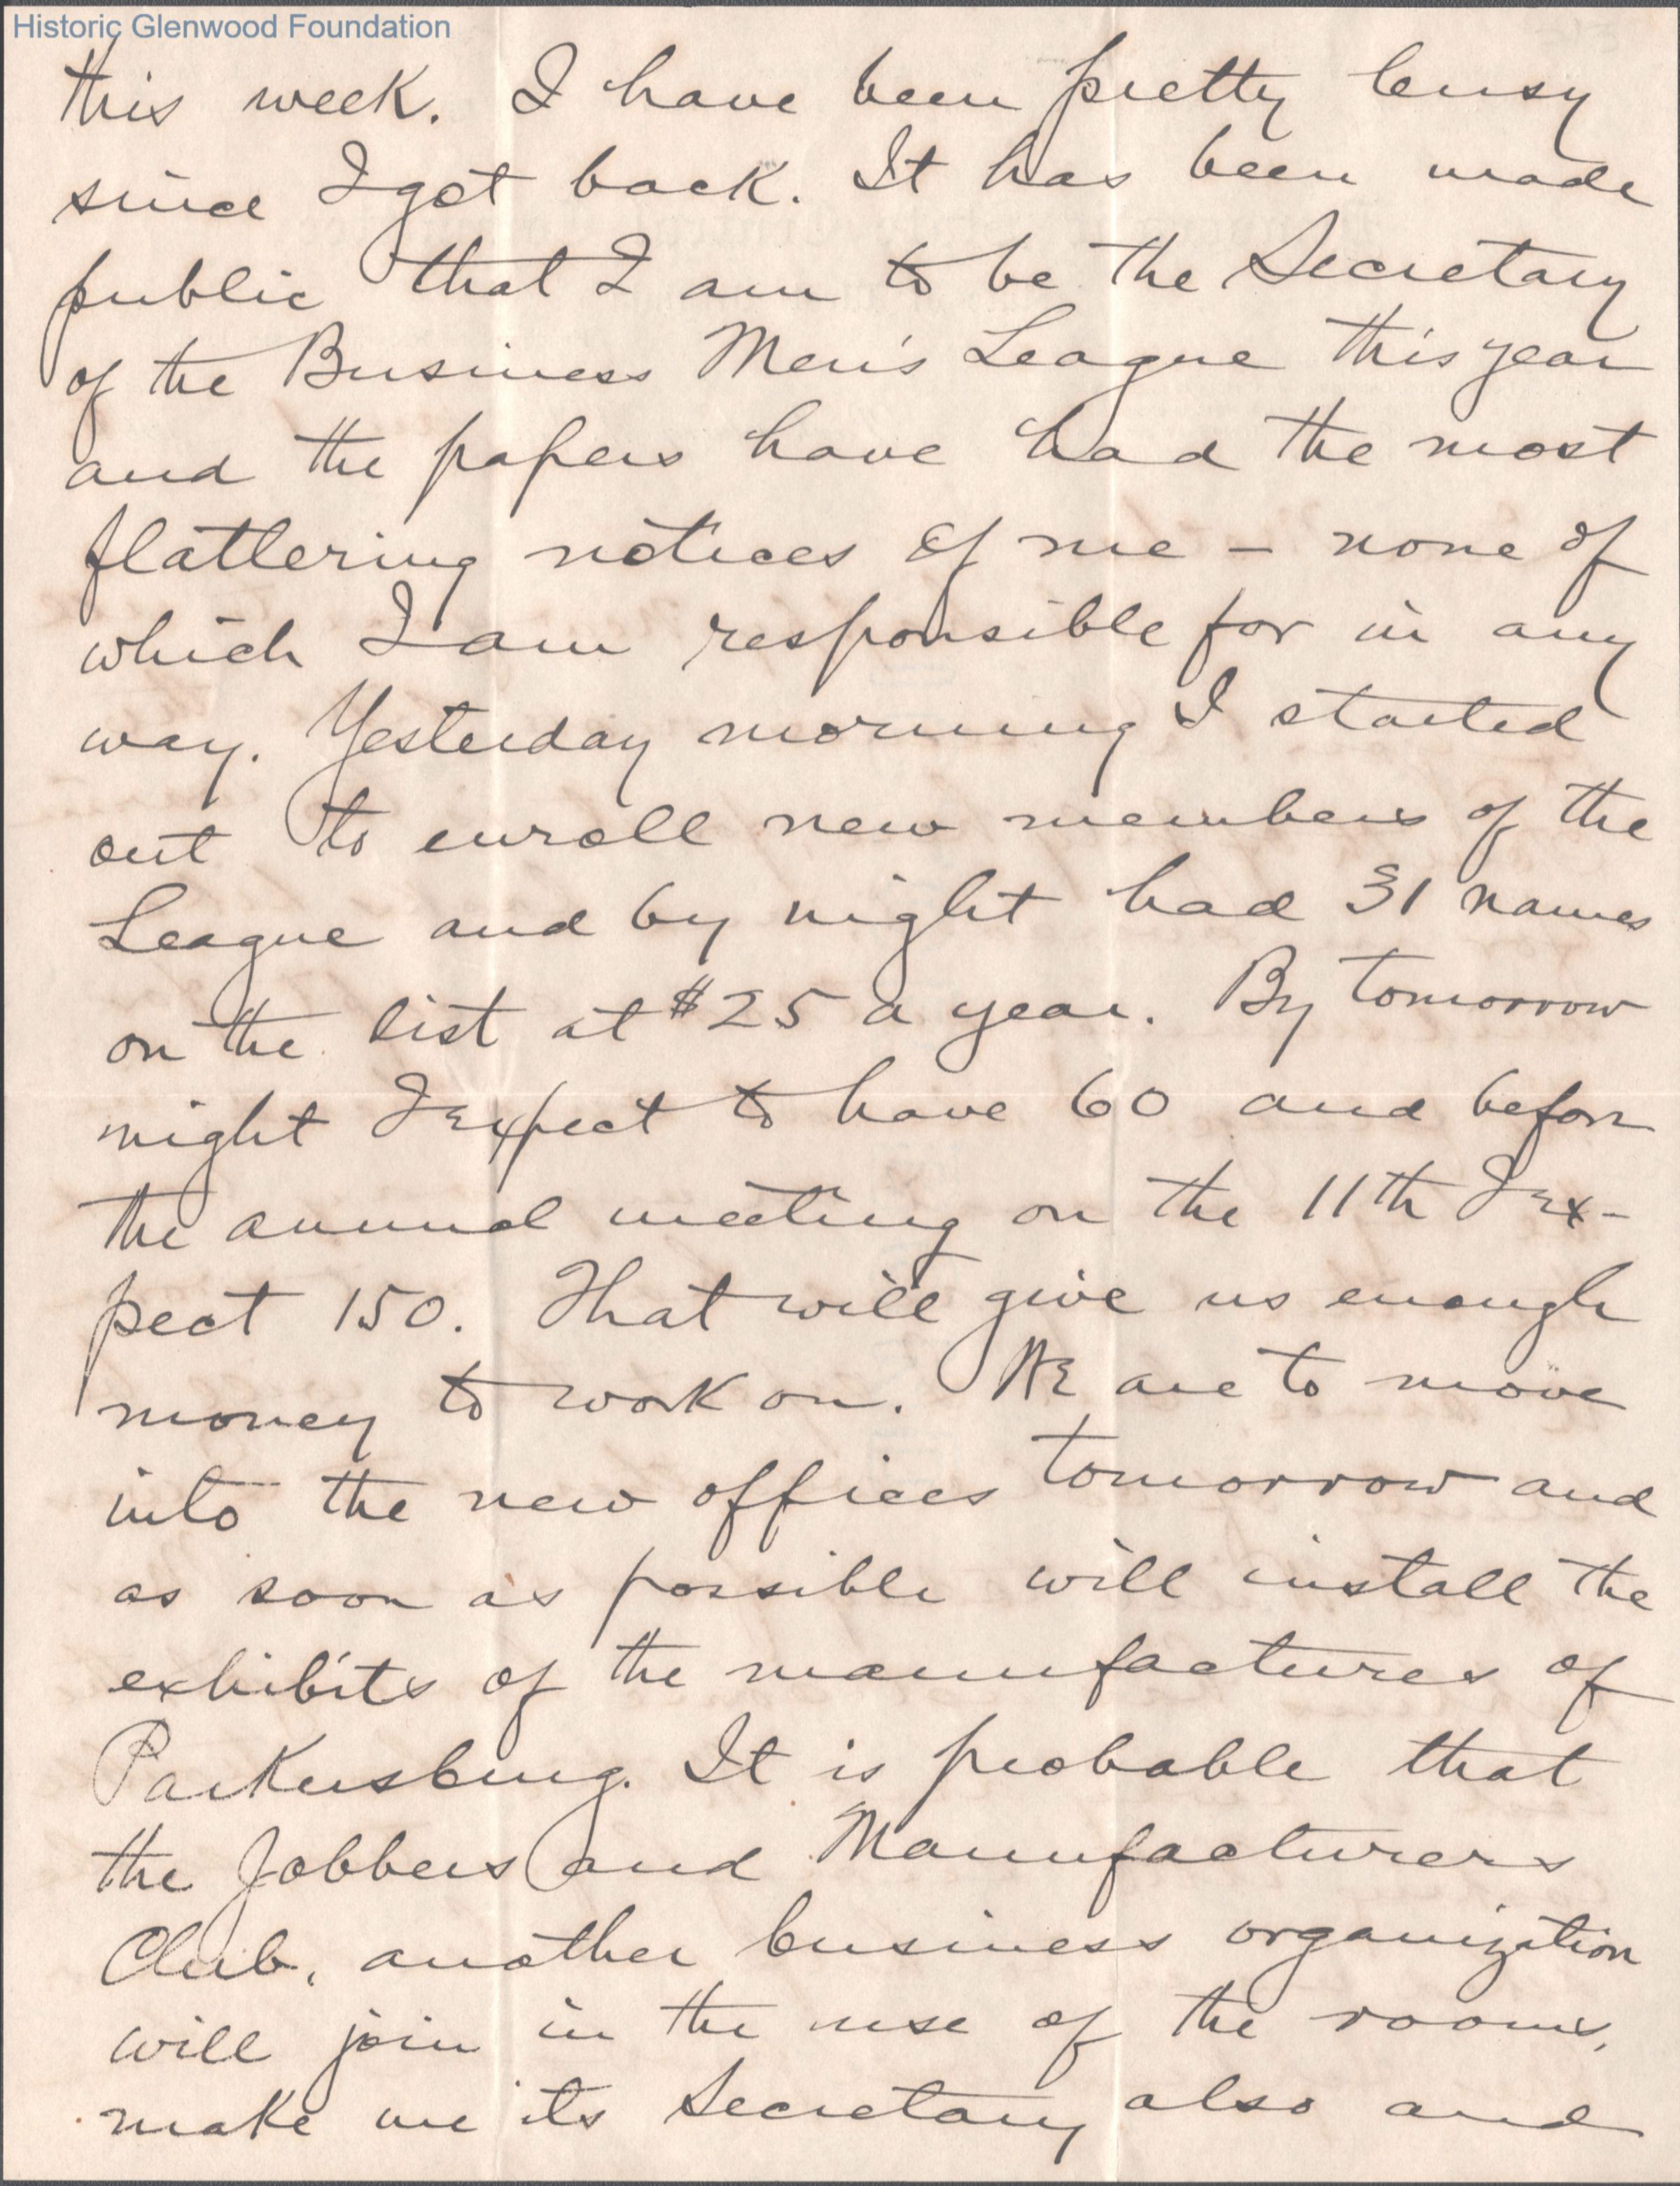 Historic Glenwood Foundation
this week. I have been pretty busy
since I got back. It has been made
public that I am to be the Secretary
of the Business Men's League this year
and the papers have had the most
flattering notices of me – none of
which I am responsible for in any
way. Yesterday morning I started
out to enroll new members of the
League and by night had 31 names
on the list at $25 a year. By tomorrow
night I expect to have 60 and before
the annual meeting on the 11th I ex-
pect 150. That will give us enough
money to work on. We are to move
into the new offices tomorrow and
as soon as possible will install the
exhibits of the manufactures of
Parkersburg. It is probable that
the Jobbers and Manufacturers
Club, another business organization
will join in the use of the rooms,
make me its Secretary also and